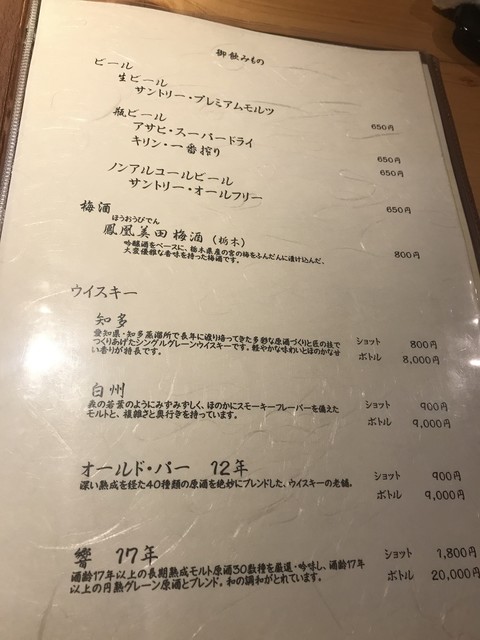 御飲みもの
ビール
生ビール
サントリー・プレミアムモルツ 650円
瓶ビール
アサヒ・スーパードライ 650円
キリン・一番搾り 650円
ノンアルコールビール
サントリー・オールフリー 650円
梅酒
ほうおうびでん
鳳凰美田 梅酒(栃木) 800円
吟醸酒をベースに、栃木県産の宮の梅をふんだんに漬け込んだ、
大変優雅な香味を持った梅酒です。
ウイスキー
知多
愛知県・知多蒸溜所で長年に渡り培ってきた多彩な原酒づくりと匠の技で
つくりあげたシングルグレーンウイスキーです。軽やかな味わいとほのかな甘
い香りが特長です。
ショット 800円
ボトル 8,000円
白州
森の若葉のようにみずみずしく、ほのかにスモーキーフレーバーを備えた
モルトと、複雑さと奥行きを持っています。
ショット 900円
ボトル 9,000円
オールド・パー 12年
深い熟成を経た40種類の原酒を絶妙にブレンドした、ウイスキーの老舗。
ショット 900円
ボトル 9,000円
響 17年
酒齢17年以上の長期熟成モルト原酒30数種を厳選・吟味し、酒齢17年
以上の円熟グレーン原酒とブレンド。和の調和がとれています。
ショット 1,800円
ボトル 20,000円